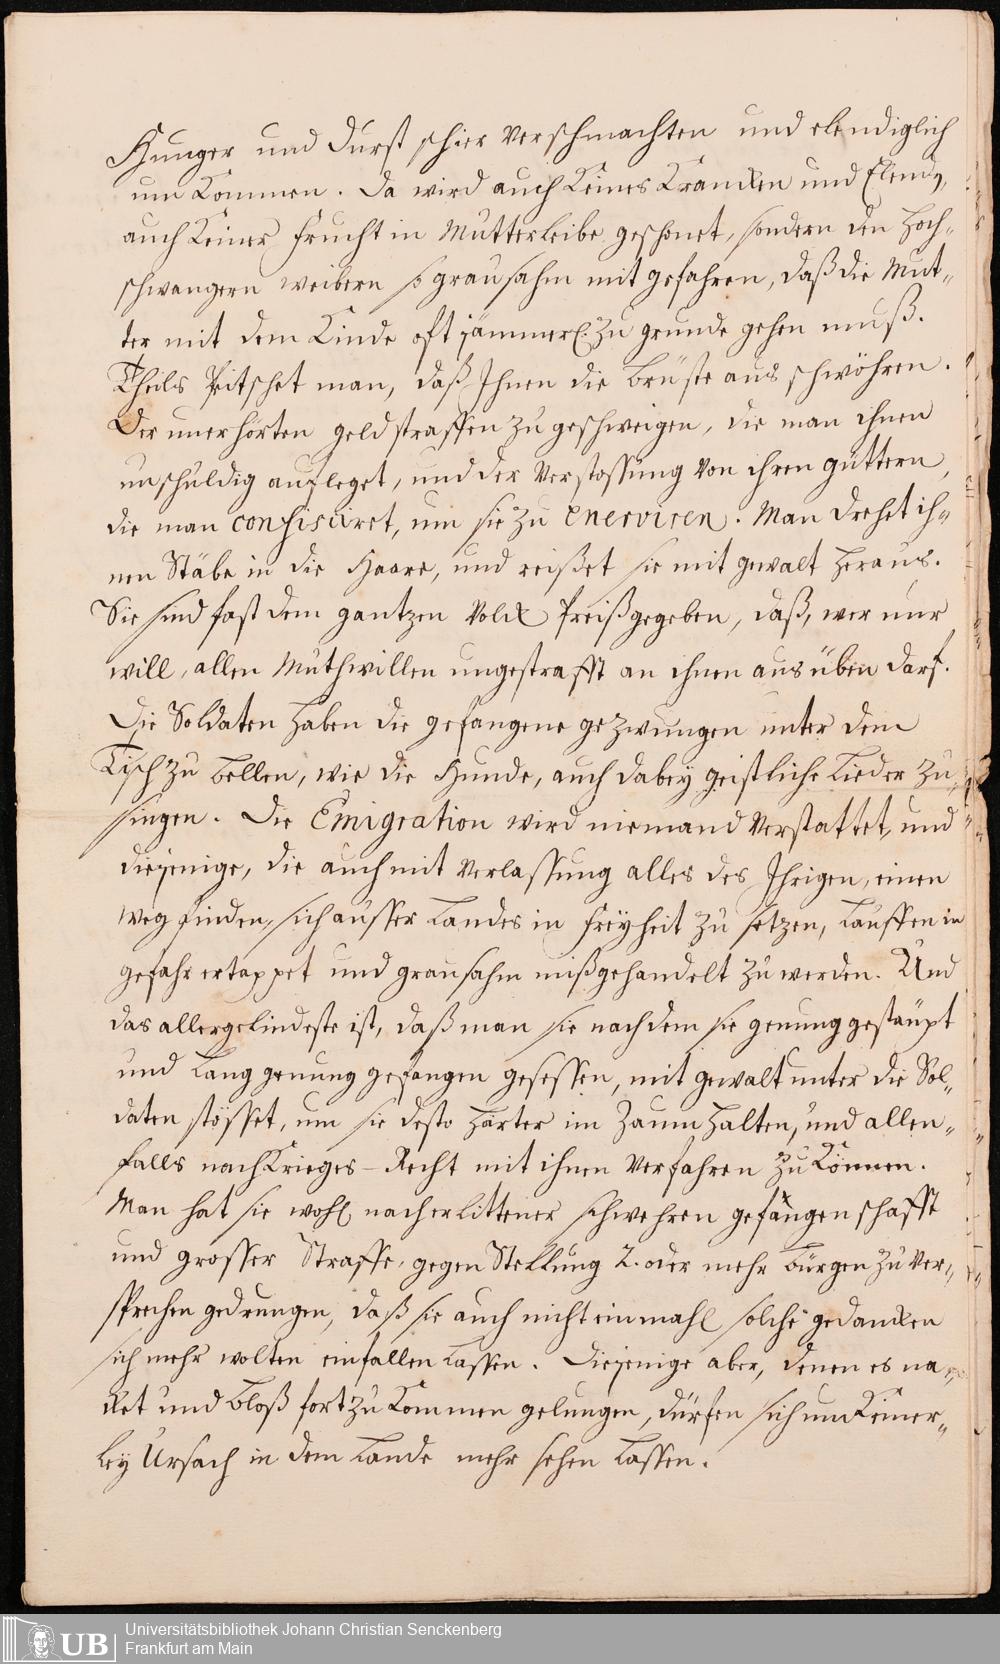 Hunger und Durst schier verschmachten und elendiglich
um kommen. Da wird auch keines Krancken und Elend,
auch keiner Frucht in Mutterleibe geschonet, sondern den hoch-
schwangern weibern so grausahm mit gefahren, daß die Mut-
ter mit dem Kinde oft jämmerl. zu grunde gehen muß.
Theils Peitschet man, daß Ihnen die brüste aus schwöhren.
Der unerhörten geldstraffen zu geschweigen, die man ihnen
unschuldig aufleget, und der Verstossung von ihren güttern,
die man confisciret, um sie zu enerviren. Man drehet ih-
nen Stäbe in die Haare, und reißet sie mit gewalt heraus.
Sie sind fast dem gantzen Volck Preißgegeben, daß, wer nur
will, allen Muthwillen ungestrafft an ihnen ausüben darf.
Die Soldaten haben die gefangene gezwungen unter dem
Tisch zu bellen, wie die Hunde, auch dabey geistliche Lieder zu
singen. Die Emigration wird niemand verstattet, und
diejenige, die auch mit verlassung alles des Ihrigen, einen
weg finden, sich ausser Landes in freyheit zu setzen, lauffen in
gefahr ertappet und grausahm mißgehandelt zu werden. Und
das allergelindeste ist, daß man sie nachdem sie genung gestäupt
und lang genung gefangen gesessen, mit gewalt unter die Sol-
daten stösset, um sie desto härter im Zaum halten, und allen-
falls nach Krieges-Recht mit ihnen verfahren zu können.
Man hat sie wohl nach erlittener schwehren gefangenschafft
und grosser Straffe, gegen Stellung 2. oder mehr bürgen zu ver-
sprechen gedrungen, daß sie auch nicht einmahl solche gedancken
sich mehr wolten einfallen lassen. Diejenige aber, denen es na-
cket und bloß fortzukommen gelungen, dürfen sich um keiner-
ley Ursach in dem Lande mehr sehen lassen.
UB
Universitätsbibliothek Johann Christian Senckenberg
Frankfurt am Main